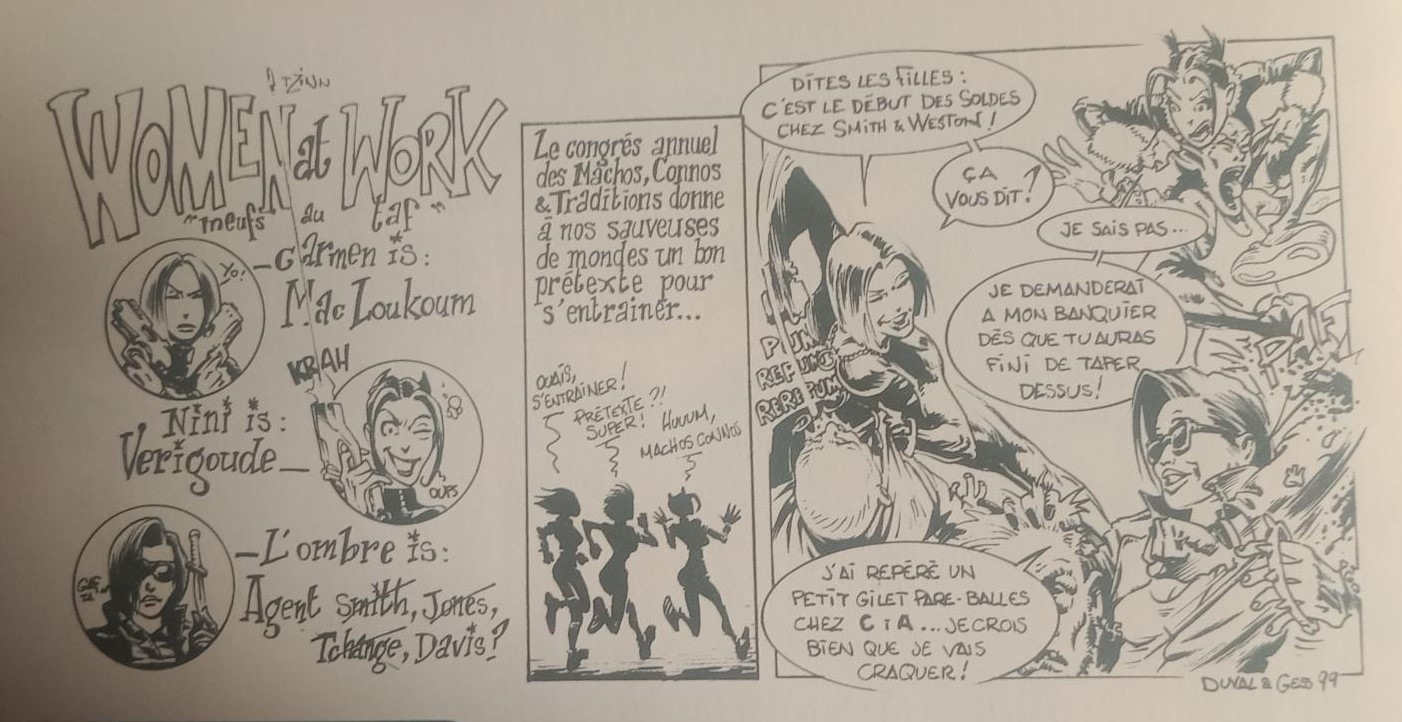 TZINN
WOMEN at WORK
"meufs au taf"
YO!
- Carmen is:
Mac Loukoum
KRAH
Nini is:
Verigoude -
OUPS
- L'ombre is:
Agent Smith, Jones,
Tchange, Davis?
Le congrés annuel
des Machos, Connos
& Traditions donne
à nos sauveuses
de mondes un bon
prétexte pour
s'entrainer...
OUAIS,
S'ENTRAINER!
PRÉTEXTE ?!
SUPER!
HUUUM,
MACHOS CONNOS
DITES LES FILLES :
C'EST LE DÉBUT DES SOLDES
CHEZ SMITH & WESTON!
ÇA
VOUS DIT?
JE SAIS PAS...
JE DEMANDERAI
A MON BANQUIER
DÈS QUE TU AURAS
FINI DE TAPER
DESSUS!
PUM
REPUM
REREPUM
J'AI REPÉRÉ UN
PETIT GILET PARE-BALLES
CHEZ C I A... JE CROIS
BIEN QUE JE VAIS
CRAQUER!
DUVAL & GESS 99